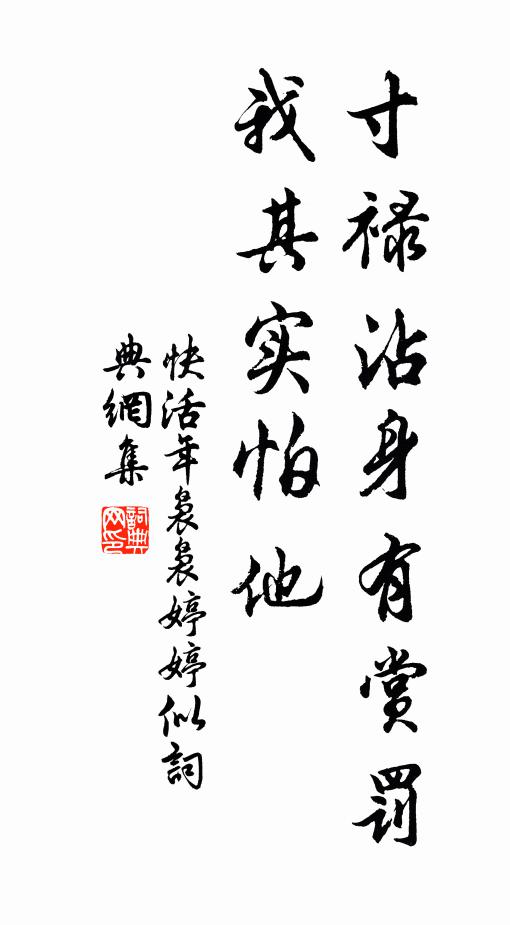 寸禄沾身有赏罚
我其实怕他
快活年裊裊婷婷似詞
典網集
詞典
网印